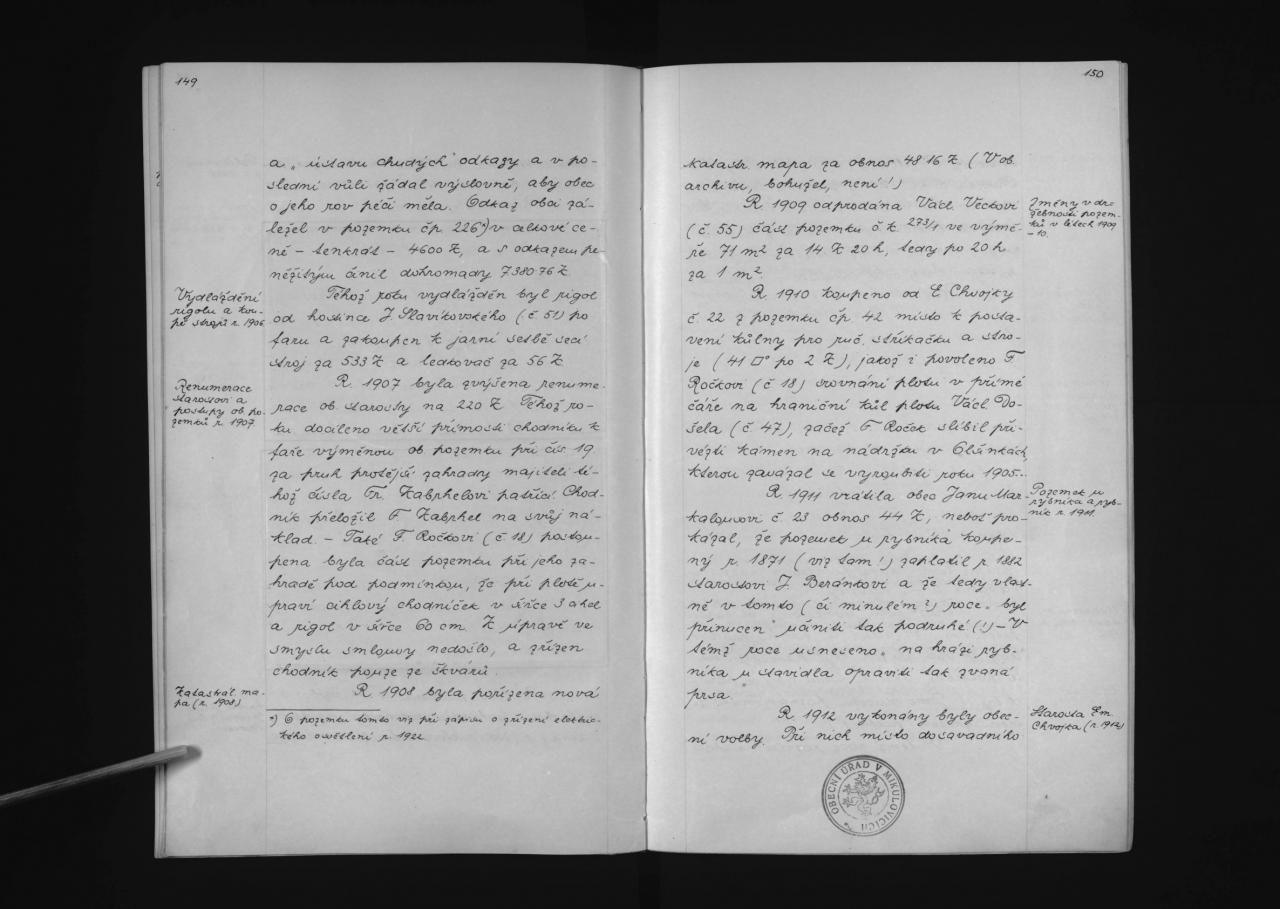 149
a „ústavu chudých“ odkazy a v po-
slední vůli žádal výslovně, aby obec
o jeho rov péči měla. Odkaz obci zá-
ležel v pozemku čp. 226*) v celkové ce-
ně – tenkrát – 4600 K, a s odkazem pe-
něžitým činil dohromady 7380·76 K.
Vydláždění
rigolu a kou-
pě strojů r. 1906.
Téhož roku vydlážděn byl rigol
od hostince J. Slavíkovského (č. 51) po
faru a zakoupen k jarní setbě secí
stroj za 533 K a ledkovač za 56 K.
Renumerace
starostovi a
postupy ob. po-
zemků r. 1907.
R. 1907 byla zvýšena renume-
race ob. starosty na 220 K. Téhož ro-
ku docíleno větší přímosti chodníku k
faře výměnou ob. pozemku při čís. 19
za pruh protější zahrady majiteli té-
hož čísla Fr. Kabrhelovi patřící. Chod-
ník přeložil F. Kabrhel na svůj ná-
klad. – Také F. Ročkovi (č. 18) postou-
pena byla část pozemku při jeho za-
hradě pod podmínkou, že při plotě u-
praví cihlový chodníček v šířce 3 cihel
a rigol v šířce 60 cm. K úpravě ve
smyslu smlouvy nedošlo, a zřízen
chodník pouze ze škvárů.
Katastrál. ma-
pa (r. 1908)
R. 1908 byla pořízena nová
*) O pozemku tomto viz při zápisu o zřízení elektric-
kého osvětlení r. 1922.
150
katastr. mapa za obnos 48·16 K. (V ob.
archivu, bohužel, není!)
Změny v dr-
žebnosti pozem-
ků v letech 1909
– 10.
R. 1909 odprodána Václ. Večkovi
(č. 55) část pozemku č. k. 273/1 ve výmě-
ře 71 m² za 14 K 20 h, tedy po 20 h
za 1 m².
R. 1910 koupeno od E. Chvojky
č. 22 z pozemku čp. 42 místo k posta-
vení kůlny pro ruč. stříkačku a stro-
je (41 □° po 2 K), jakož i povoleno F.
Ročkovi (č. 18) srovnání plotu v přímé
čáře na hraniční kůl plotu Václ. Do-
šela (č. 47), začež F. Roček slíbil při-
vézti kámen na nádržku v Olšinkách,
kterou zavázal se vyroubiti roku 1905.
Pozemek u
rybníka a ryb-
ník r. 1911.
R. 1911 vrátila obec Janu Mar-
kalousovi č. 23 obnos 44 K, neboť pro-
kázal, že pozemek u rybníka koupe-
ný r. 1871 (viz tam!) zaplatil r. 1882
starostovi J. Beránkovi a že tedy vlast-
ně v tomto (či minulém?) roce „byl
přinucen“ učiniti tak podruhé (!) – V
témž roce usneseno „na hrázi ryb-
níka u stavidla opraviti tak zvaná
prsa.
Starosta Em.
Chvojka (r. 1912)
R. 1912 vykonány byly obec-
ní volby. Při nich místo dosavadního
OBECNÍ ÚŘAD V MIKULOVICÍCH